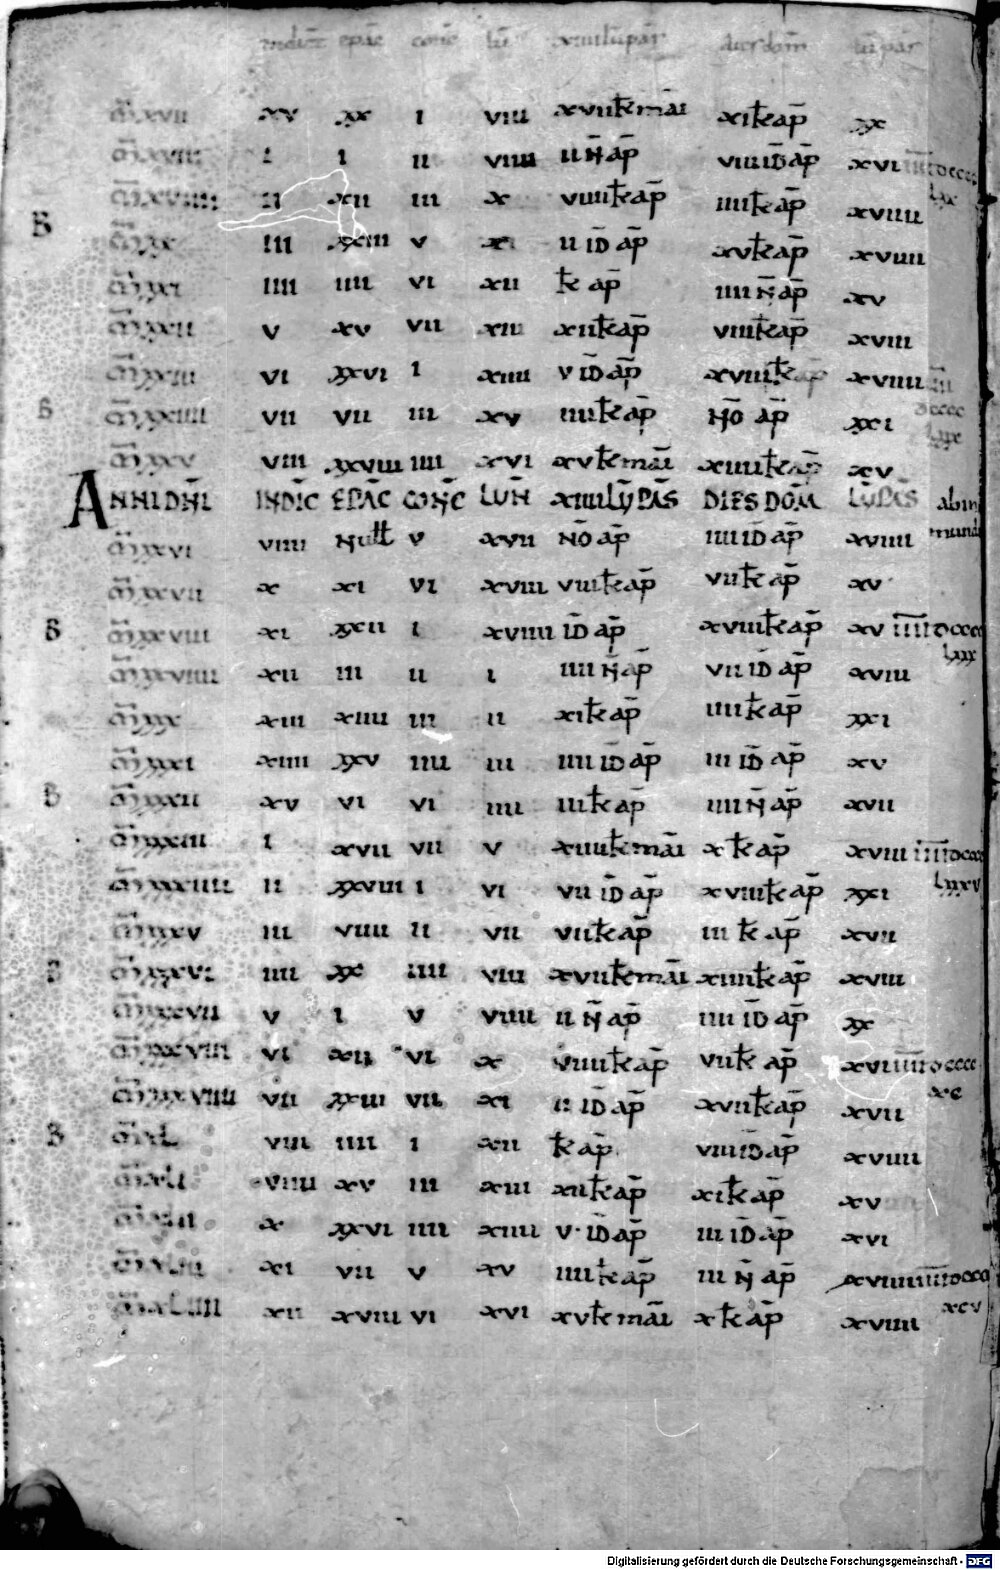 indict epac conc lu xiiii lu par dies dom lu par
m̄xvii xv xx i viii xvii kl mai xi kl ap̄ xx
m̄xviii i i ii viiii ii n̄ ap̄ viiii id̄ ap̄ xvi īīīīdcccc
lxx
m̄xviiii ii xii iii x viiii kl ap̄ iiii kl ap̄ xviiii
B m̄xx iii xxiii v xi ii id̄ ap̄ xv kl ap̄ xviiii
m̄xxi iiii iiii vi xii kl ap̄ iiii n̄ ap̄ xv
m̄xxii v xv vii xiii xii kl ap̄ viii kl ap̄ xviii
m̄xxiii vi xxvi i xiiii v id̄ ap̄ xviii kl ap̄ xviiii
B m̄xxiiii vii vii iii xv iiii kl ap̄ nō ap̄ xxi
m̄xxv viii xviii iiii xvi xv kl mai xiiii kl ap̄ xv
ANNI DN̄I INDIC̄ EPAC̄ CONC̄ LUN̄ XIIII LŪ PAS̄ DIES DOM̄ LŪ PAS̄ ab in
mundi
m̄xxvi viiii Null v xvii nō ap̄ iiii id̄ ap̄ xviiii
m̄xxvii x xi vi xviii viii kl ap̄ vii kl ap̄ xv
B m̄xxviii xi xxii i xviiii id̄ ap̄ xviii kl ap̄ xv īīīīdcccc
lxxx
m̄xxviiii xii iii ii i iiii n̄ ap̄ vii id̄ ap̄ xviii
m̄xxx xiii xiiii iii ii xi kl ap̄ iiii kl ap̄ xxi
m̄xxxi xiiii xxv iiii iii iiii id̄ ap̄ iii id̄ ap̄ xv
B m̄xxxii xv vi vi iiii iii kl ap̄ iiii n̄ ap̄ xvii
m̄xxxiii i xvii vii v xiiii kl mai x kl ap̄ xviii īīīīdcccc
lxxxv
m̄xxxiiii ii xxviii i vi vii id̄ ap̄ xviiii kl ap̄ xxi
m̄xxxv iii viiii ii vii vii kl ap̄ iii kl ap̄ xvii
B m̄xxxvi iiii xx iiii viii xvii kl mai xiiii kl ap̄ xviii
m̄xxxvii v i v viiii ii n̄ ap̄ iiii id̄ ap̄ xx
m̄xxxviii vi xii vi x viiii kl ap̄ vii kl ap̄ xvi īīīīdcccc
xc
m̄xxxviiii vii xxiii vii xi ii id̄ ap̄ xvii kl ap̄ xvii
B m̄xl viii iiii i xii kl ap̄ viiii id̄ ap̄ xviiii
m̄xli viiii xv iii xiii xii kl ap̄ xi kl ap̄ xv
m̄xlii x xxvi iiii xiiii v id̄ ap̄ iii id̄ ap̄ xvi
m̄xliii xi vii v xv iiii kl ap̄ iii n̄ ap̄ xviiii īīīīdcccc
xcv
m̄xliiii xii xviii vi xvi xv kl mai x kl ap̄ xviiii
Digitalisierung gefördert durch die Deutsche Forschungsgemeinschaft - DFG